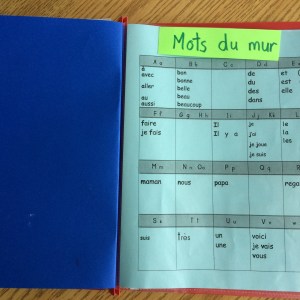 Mots du mur
Aa Bb Cc Dd
à bon de et
avec bonne du est
aller belle des elle
au beau dans
aussi beaucoup
Ff
faire Il je le
je fais Il y a j'ai la
je joue les
je suis
maman nous papa
un voici
une je vais
vous